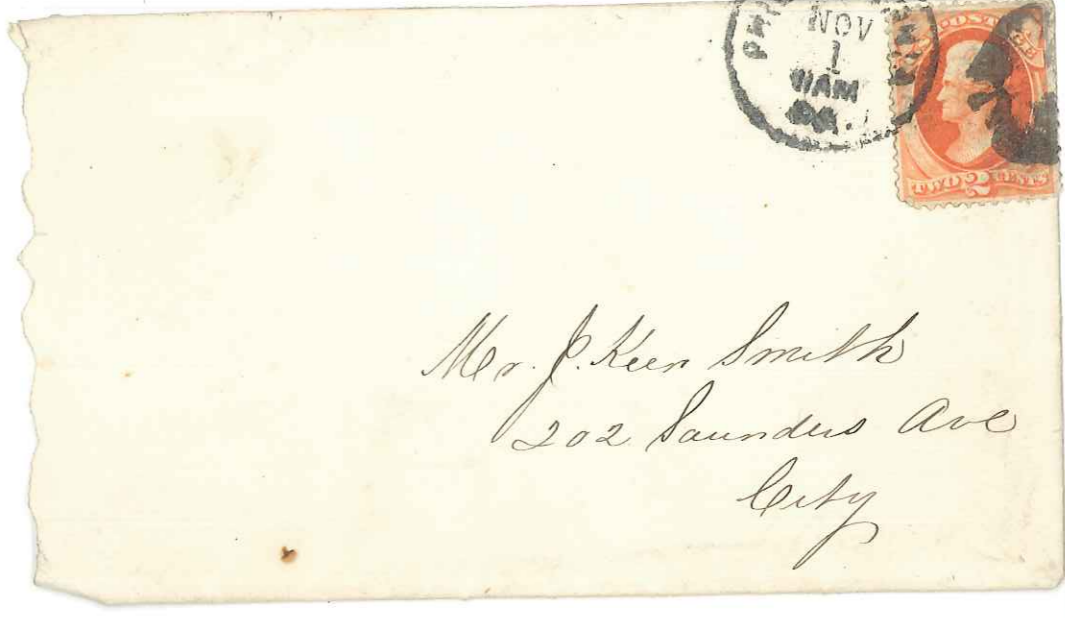 NOV
1
11AM
PA.
POSTAGE
TWO 2 CENTS
Mr. J. Keen Smith
202 Saunders Ave
City